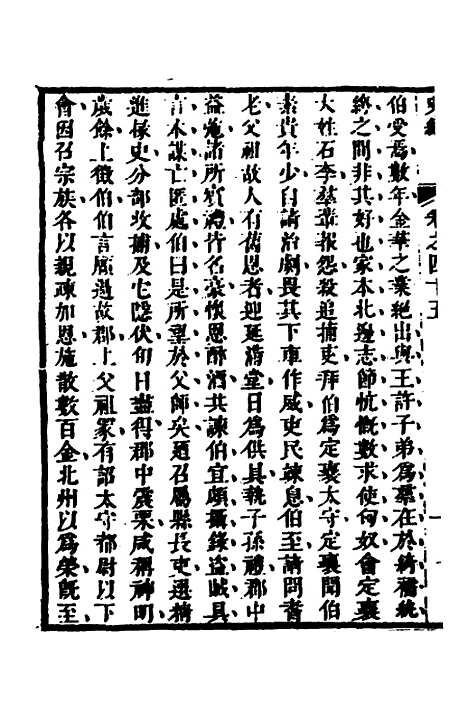 史緯 卷之四十五
伯受焉數年金華之業絕出與王許子弟爲羣在於綺襦紈
絝之間非其好也家本北邊志節忼慨數求使匈奴會定襄
大姓石李羣輩報怨殺追捕吏拜伯爲定襄太守定襄聞伯
素貴年少自請治劇畏其下車作威吏民竦息伯至請問耆
老父祖故人有舊恩者迎延滿堂日爲供具執子孫禮郡中
益弛諸所賓禮皆名豪懷恩醉酒共諫伯宜頗攝錄盜賊具
言本謀亡匿處伯曰是所望於父師矣廼召屬縣長吏選精
進掾史分部收捕及它隱伏旬日盡得郡中震栗咸稱神明
歲餘上徵伯伯言願過故郡上父祖冢有詔太守都尉以下
會因召宗族各以親疎加恩施散數百金北州以爲榮旣至